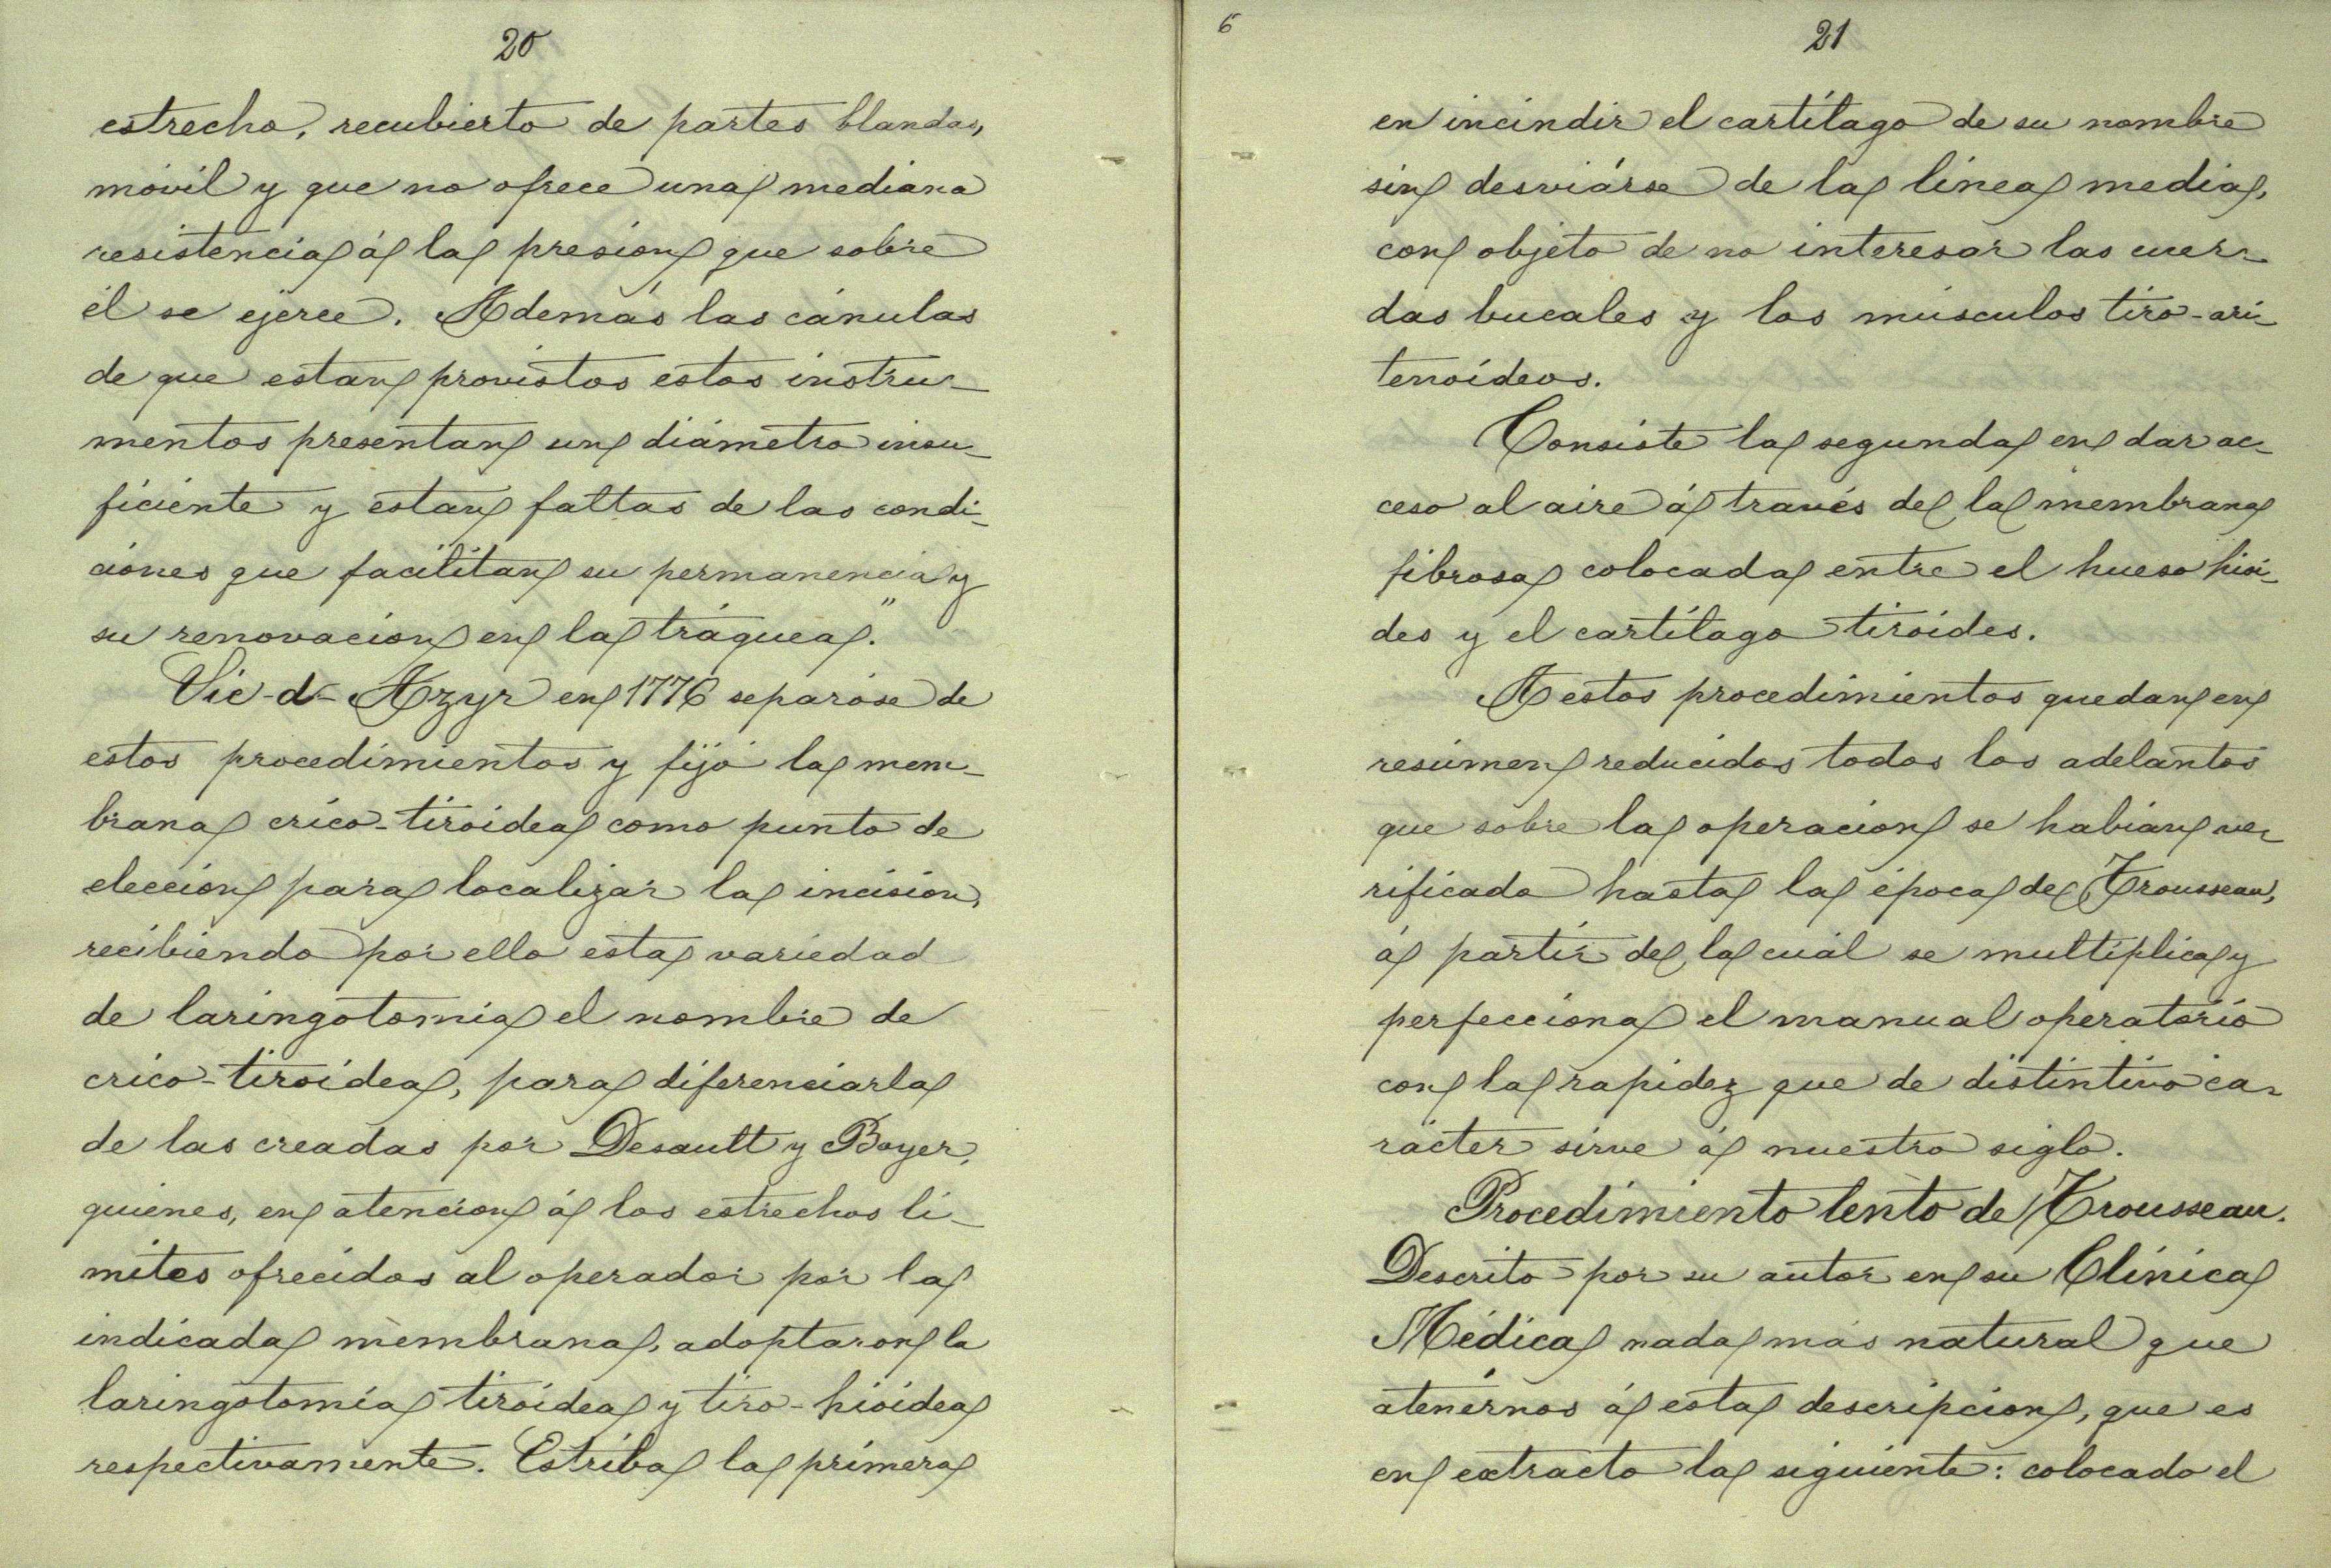 20
estrecho, recubierto de partes blandas,
móvil y que no ofrece una mediana
resistencia á la presion que sobre
él se ejerce. Además las cánulas
de que estan provistos estos instru-
mentos presentan un diámetro insu-
ficiente y estan faltas de las condi-
ciones que facilitan su permanencia y
su renovacion en la tráquea."
Vic-d-Azyr en 1776 separóse de
estos procedimientos y fijó la mem-
brana crico-tiroidea como punto de
eleccion para localizar la incision,
recibiendo por ello esta variedad
de laringotomia el nombre de
crico-tiroidea, para diferenciarla
de las creadas por Desault y Boyer,
quienes, en atencion á los estrechos lí-
mites ofrecidos al operador por la
indicada membrana, adoptaron la
laringotomía tiroidea y tiro-hioidea
respectivamente. Estriba la primera
6
21
en incindir el cartílago de su nombre
sin desviárse de la línea media,
con objeto de no interesar las cuer-
das bucales y los músculos tiro-ari-
tenoídeos.
Consiste la segunda en dar ac-
ceso al aire á través de la membrana
fibrosa colocada entre el hueso hioi-
des y el cartílago tiroides.
A estos procedimientos quedan en
resúmen reducidos todos los adelantos
que sobre la operacion se habian ve-
rificado hasta la época de Trousseau,
á partir de la cuál se multiplica y
perfecciona el manual operatorio
con la rapidez que de distintivo ca-
rácter sirve á nuestro siglo.
Procedimiento lento de Trousseau.
Descrito por su autor en su Clínica
Médica nada más natural que
atenérnos á esta descripcion, que es
en extracto la siguiente: colocado el